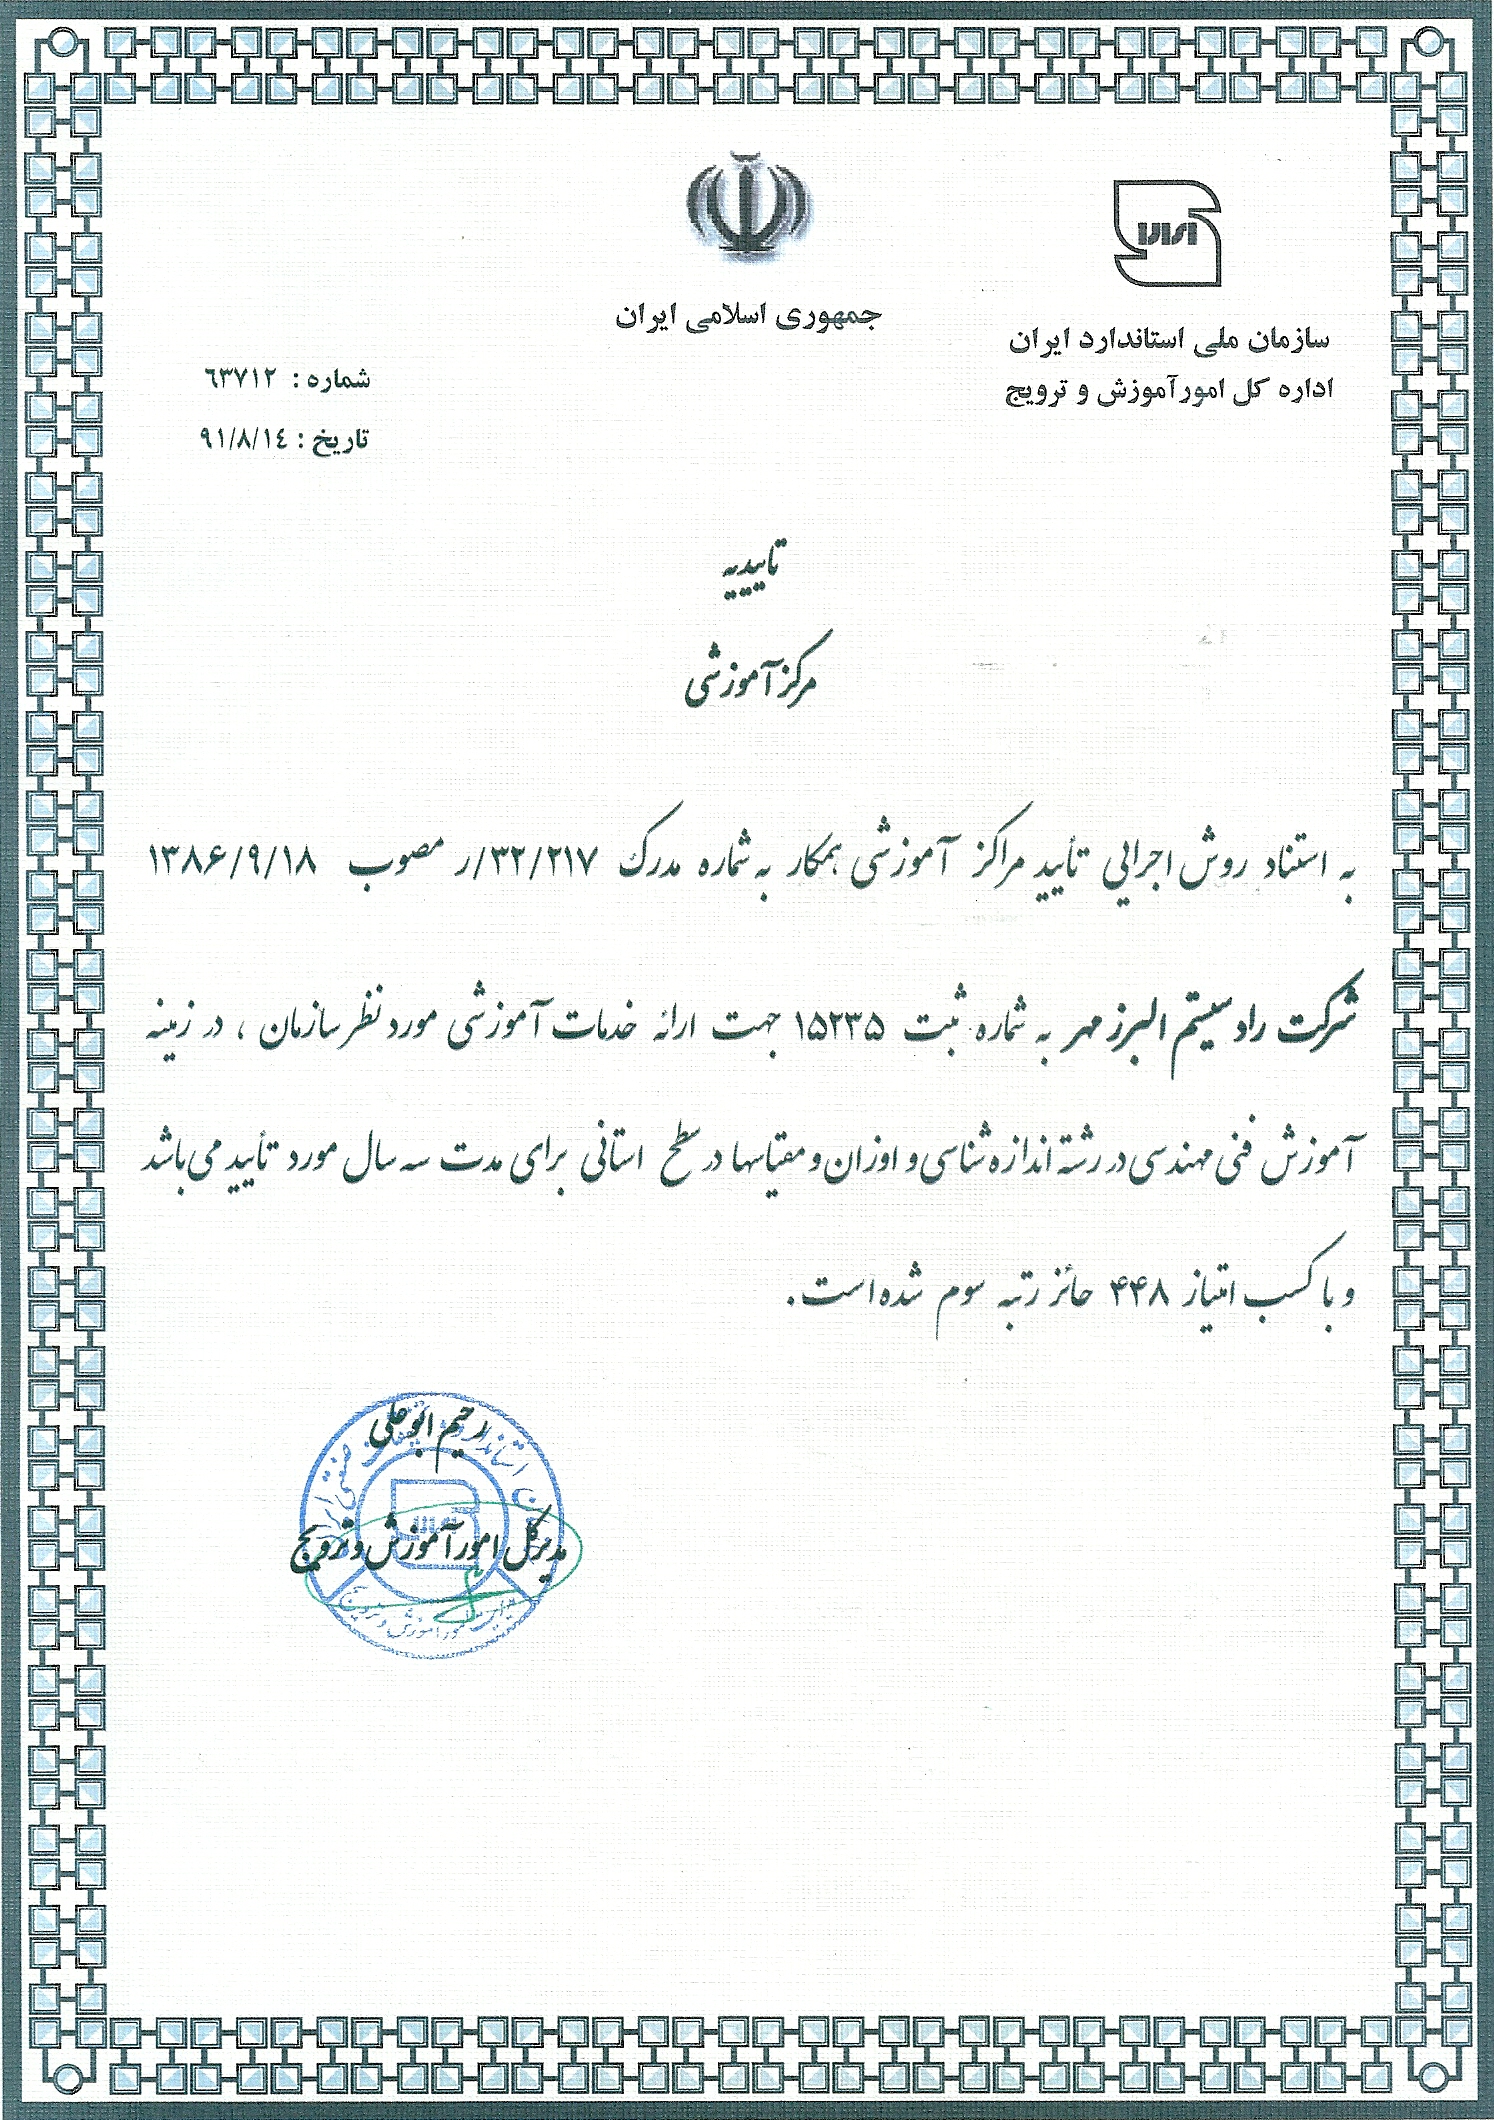 جمهوری اسلامی ایران
سازمان ملی استاندارد ایران
اداره کل امور آموزش و ترویج
شماره : ٦٣٧١٢
تاریخ : ٩١/٨/١٤
تاییدیه
مرکز آموزشی
به استناد روش اجرایی تأیید مراکز آموزشی همکار به شماره مدرک ۳۲/۲۱۷/ر مصوب ۱۳۸۶/۹/۱۸
شرکت راد سیستم البرز مهر به شماره ثبت ۱۵۲۳۵ جهت ارائه خدمات آموزشی مورد نظر سازمان ، در زمینه
آموزش فنی مهندسی در رشته اندازه شناسی و اوزان و مقیاسها در سطح استانی برای مدت سه سال مورد تأیید می باشد
و با کسب امتیاز ۴۴۸ حائز رتبه سوم شده است.
رحیم ابوعلی
مدیرکل امور آموزش و ترویج